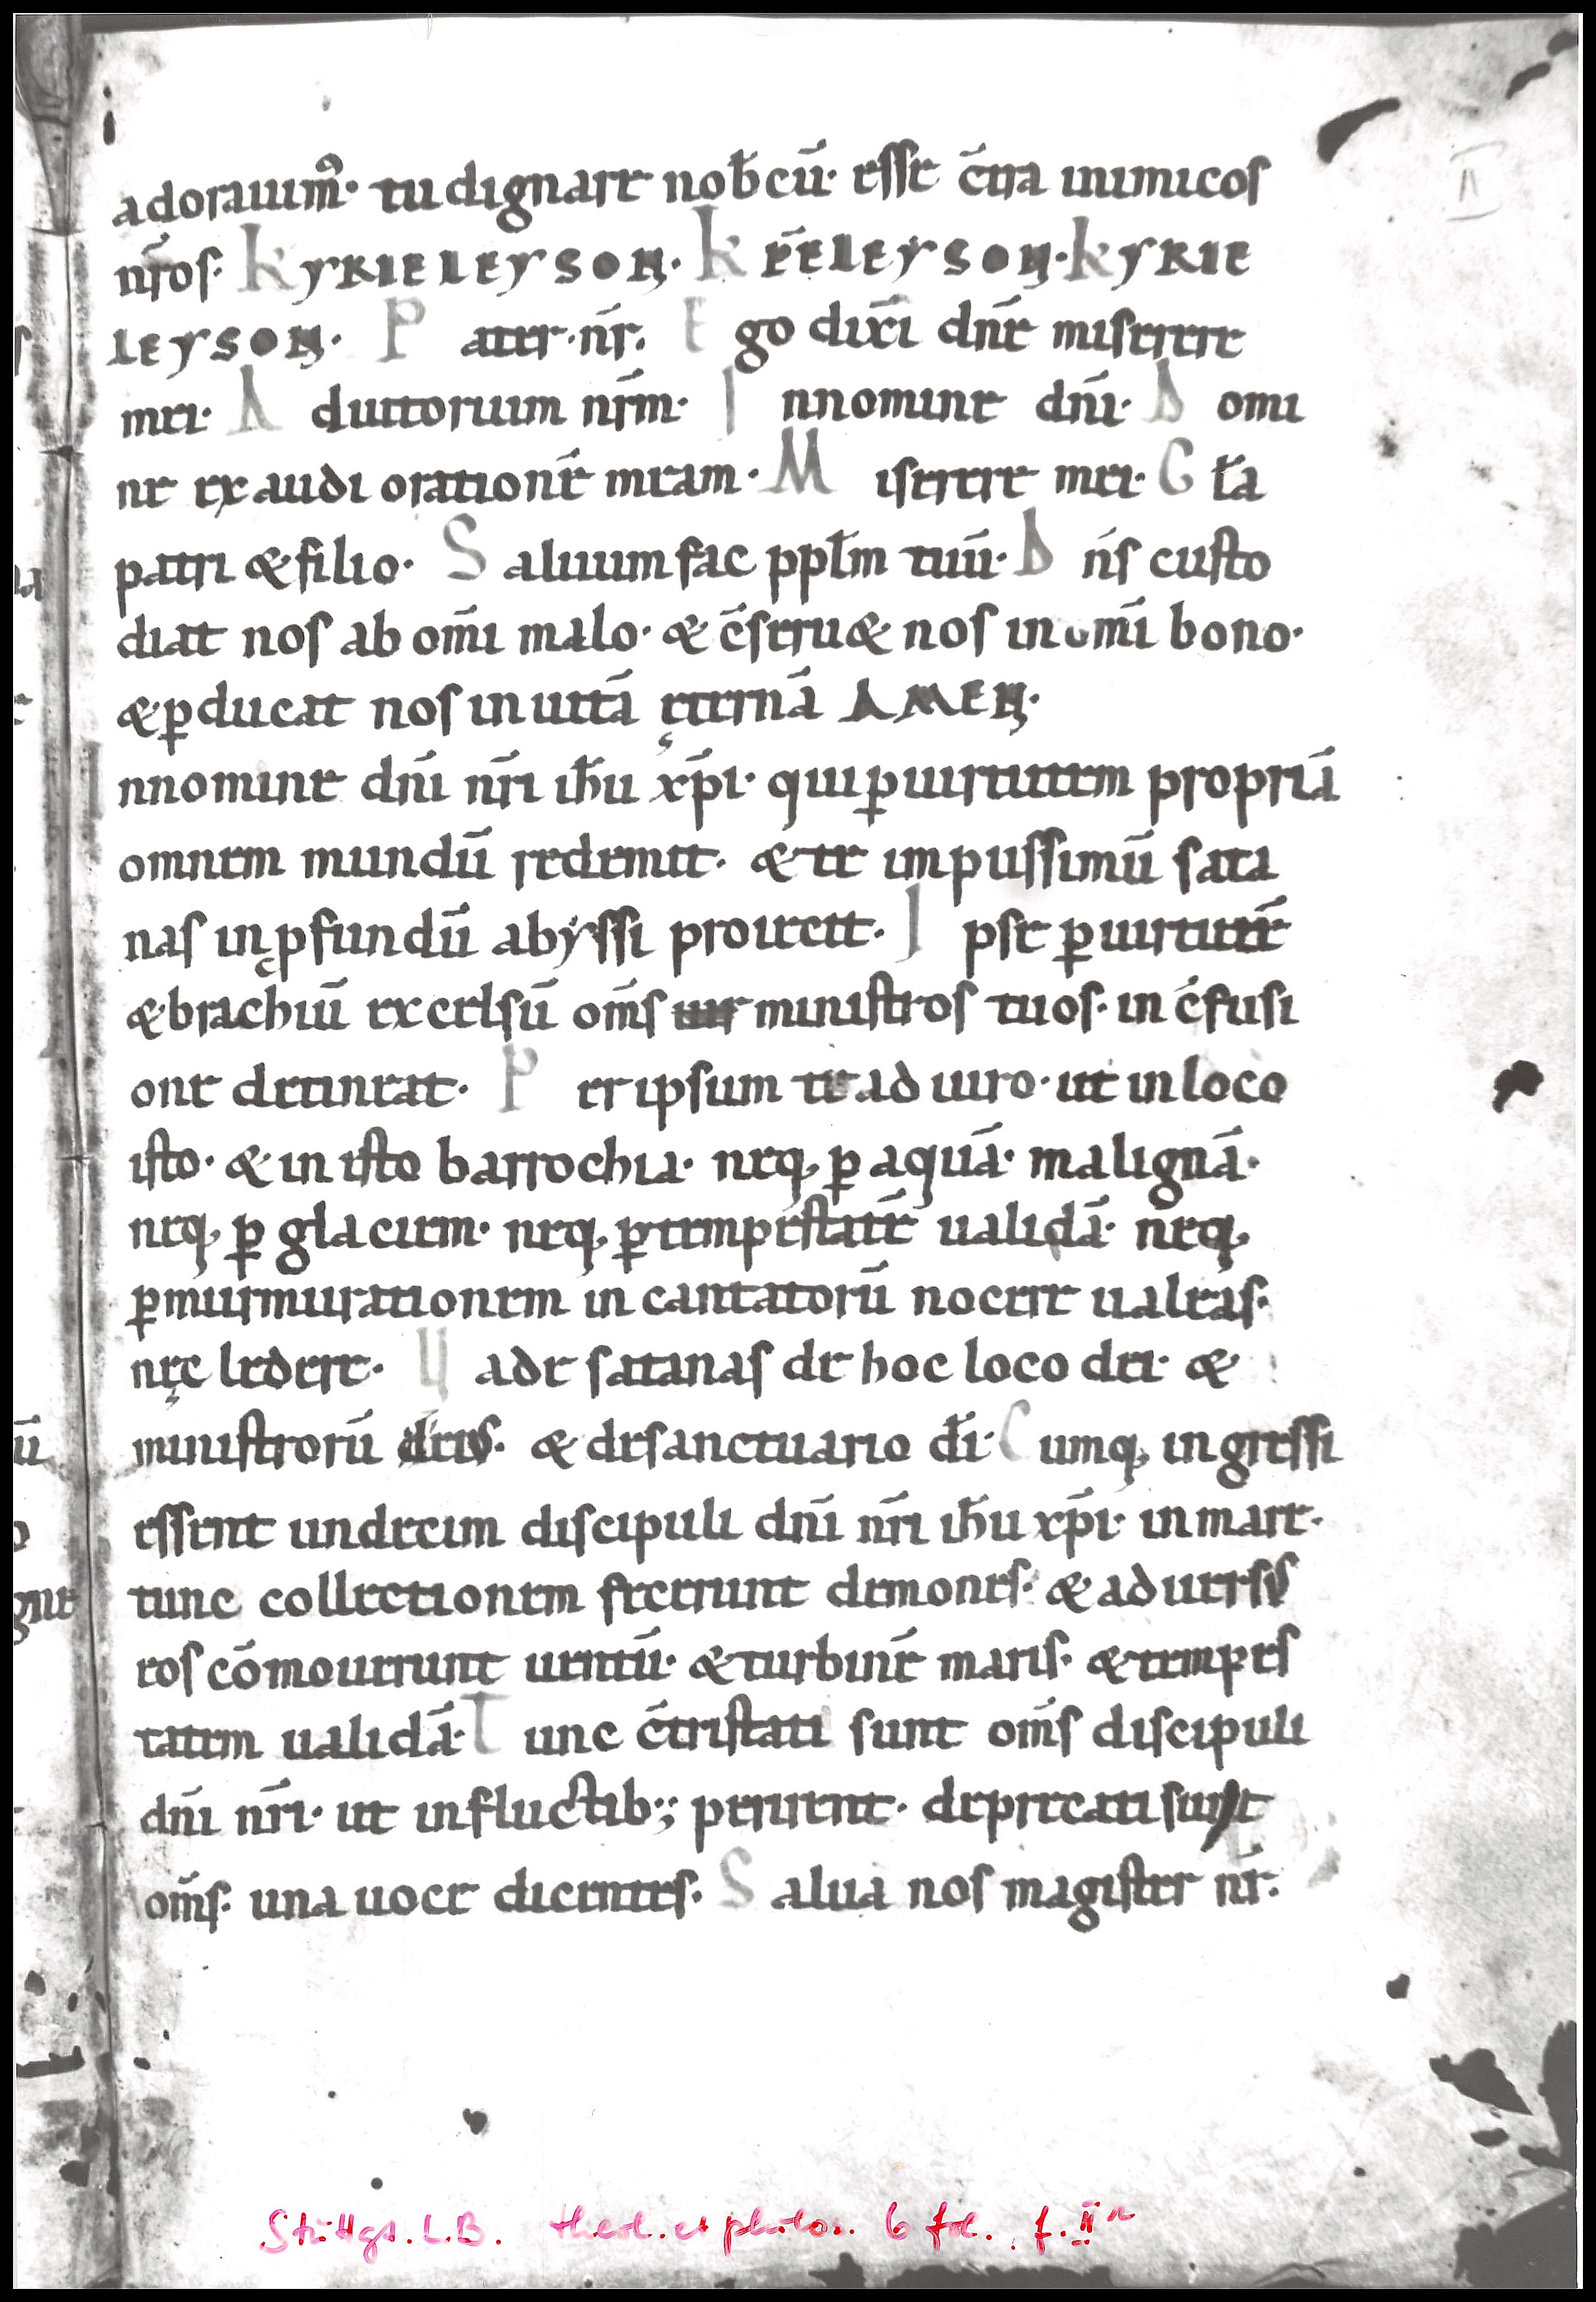 II
adorauim᷒. tu dignare nob̄cū. esse c̄tra inimicos
nr̄os. KYRIELEYSON. K R̄ELEYSON. KYRIE
LEYSON. Pater. nr̄. Ego dixi dn̄e miserere
mei. Adiutorium nr̄m. Innomine dn̄i. Domi
ne exaudi orationē meam. Miserere mei. Gl̄a
patri & filio. Saluum fac ppl̄m tuū. Dn̄s custo
diat nos ab om̄i malo. & c̄seru& nos in om̄i bono.
& ꝑducat nos in uitā ęternā AMEN.
nnomine dn̄i nr̄i ih̄u xp̄i. qui ꝑ uirtutem propriā
omnem mundū redemit. & te impiissimū sata
nas in ꝓfundū abyssi proiecit. Ipse ꝑ uirtutē
& brachiū excelsū om̄s ministros tuos. in c̄fusi
one detineat. Per ipsum te adiuro. ut in loco
isto. & in isto barrochia. neq; ꝑ aquā. malignā.
neq; ꝑ glaciem. neq; ꝑ tempestatē ualidā. neq;
ꝑ murmurationem incantatorū nocere ualeas.
nęc ledere. Uade satanas de hoc loco dei. &
ministrorū eius. & de sanctuario dī. Cumq; ingressi
essent undecim discipuli dn̄i nr̄i ih̄u xp̄i. in mare.
tunc collectionem fecerunt demones. & aduersus
eos cōmouerunt uentū. & turbinē maris. & tempes
tatem ualidā. Tunc c̄tristati sunt om̄s discipuli
dn̄i nr̄i. ut in fluctib; perirent. deprecati sunt
om̄s. una uoce dicentes. Salua nos magister nr̄.
Stuttgt. L.B. theol. et philos. 6 fol. f. IIr